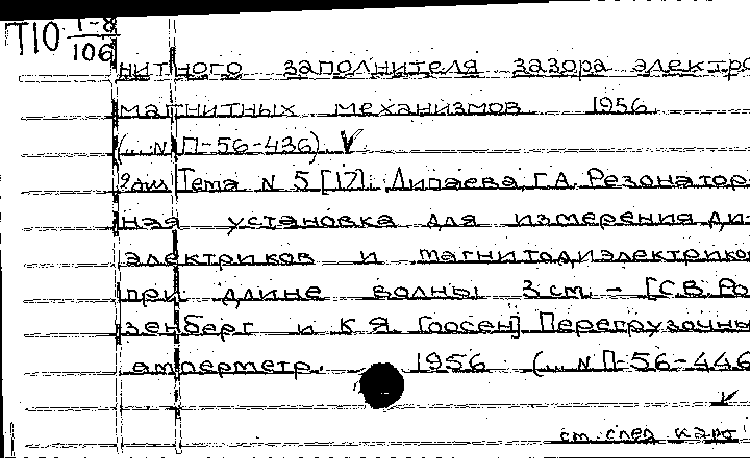 П10 1-8
106
нитного заполнителя зазора электро
магнитных механизмов 1956
(... N П-56-436) V
Тема N 5 [17]. Липаева, Г.А. Резонатор
ная установка для измерения ди
электриков и магнитодиэлектриков
при длине волны 3 cm - [С.В. Ро
зенберг и К.Я. Гоосен] Перегрузочный
амперметр. 1956 (... N П-56-446
V
см. след. карт